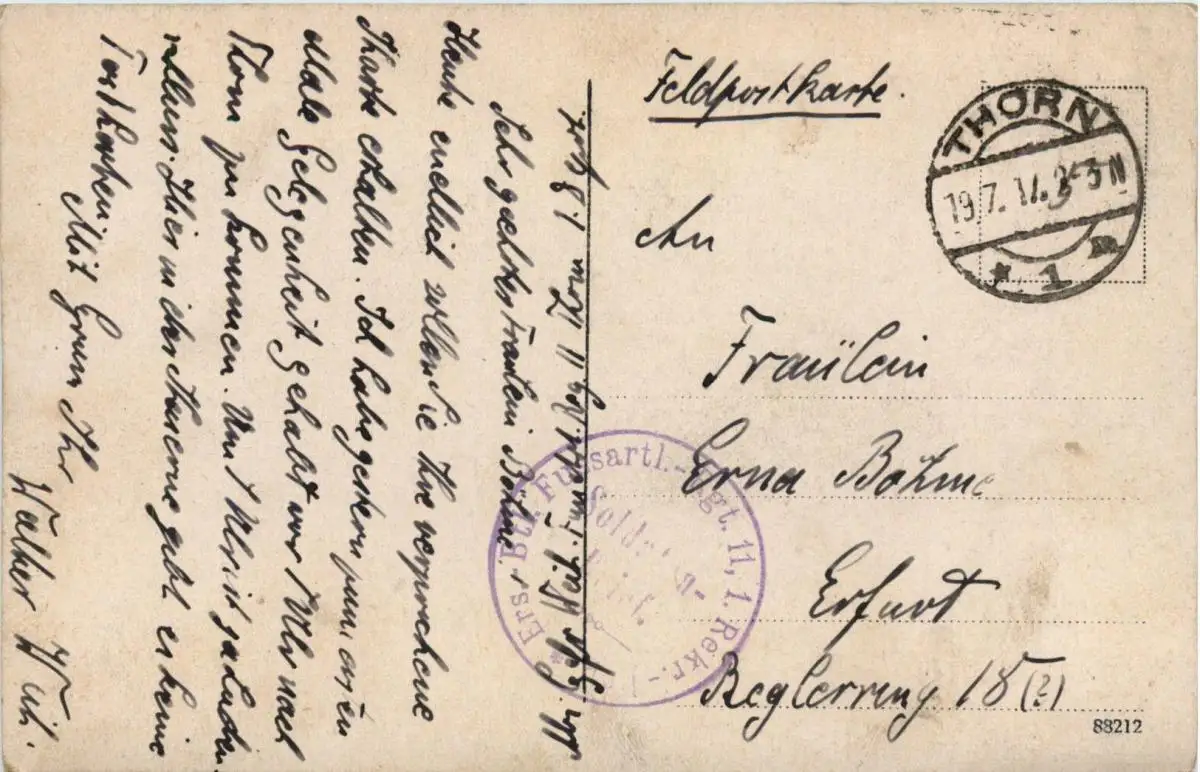 Feldpostkarte.
THORN
19.7.17. 2-3 N
* 1 m
An
Fräulein
Erna Böhme
Erfurt
Reglerring 18 (?)
88212
Ers. Btl. Fussartl.-Rgt. 11, 1. Rekr.-
Soldaten-
brief.
Sehr geehrtes Fräulein Böhme
Heute endlich sollen Sie Ihre versprochene
Karte erhalten. Ich habe gestern zum ersten
Male Gelegenheit gehabt vor 7 Uhr nach
Thorn zu kommen. Um 7 Uhr ist Laden-
schluss. Hier in der Kaserne gabt es keine
Postkarten. Mit Gruss Ihr
Walther